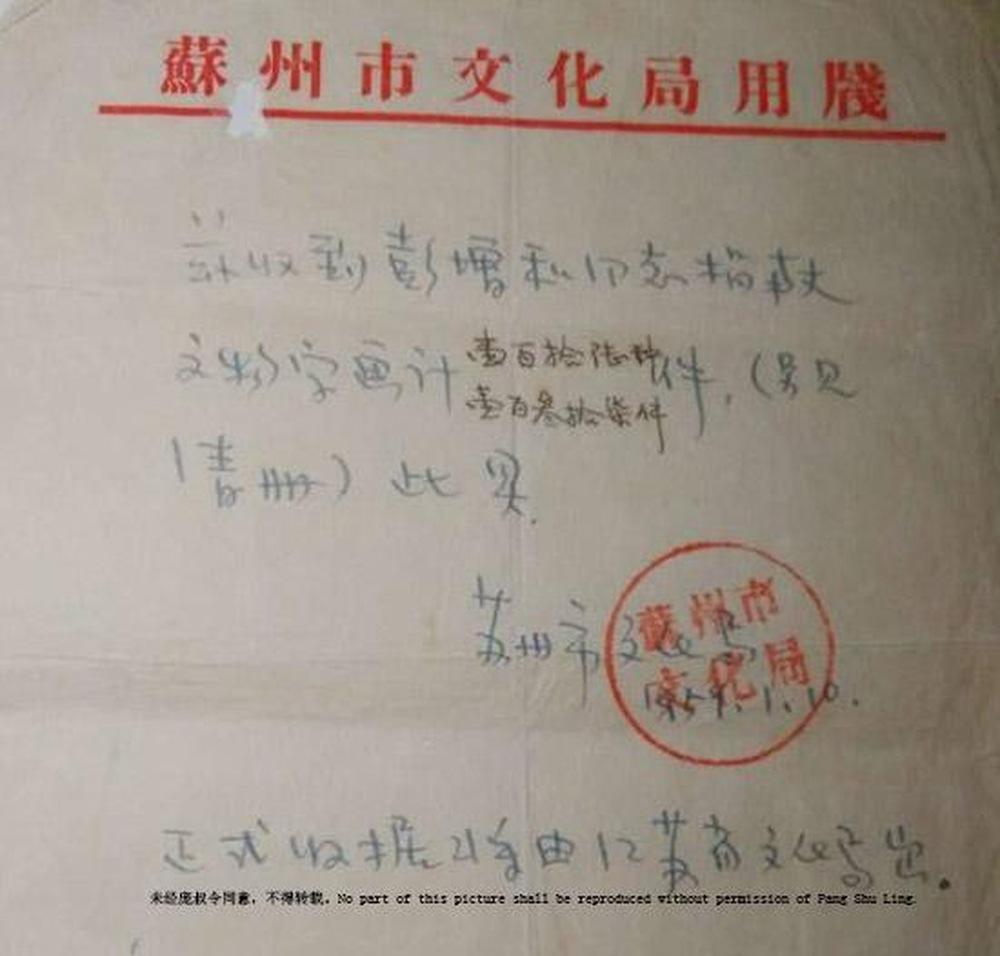 蘇州市文化局用牋
兹收到彭增和同志捐献
文物字画计壹百拾陆种件，（另见
壹百叁拾柒件
清册）此具.
苏州市文化局
蘇州市
文化局
1959.1.10.
正式收据将由江苏省文化局出.
未经庞叔令同意，不得转载。No part of this picture shall be reproduced without permission of Pang Shu Ling.